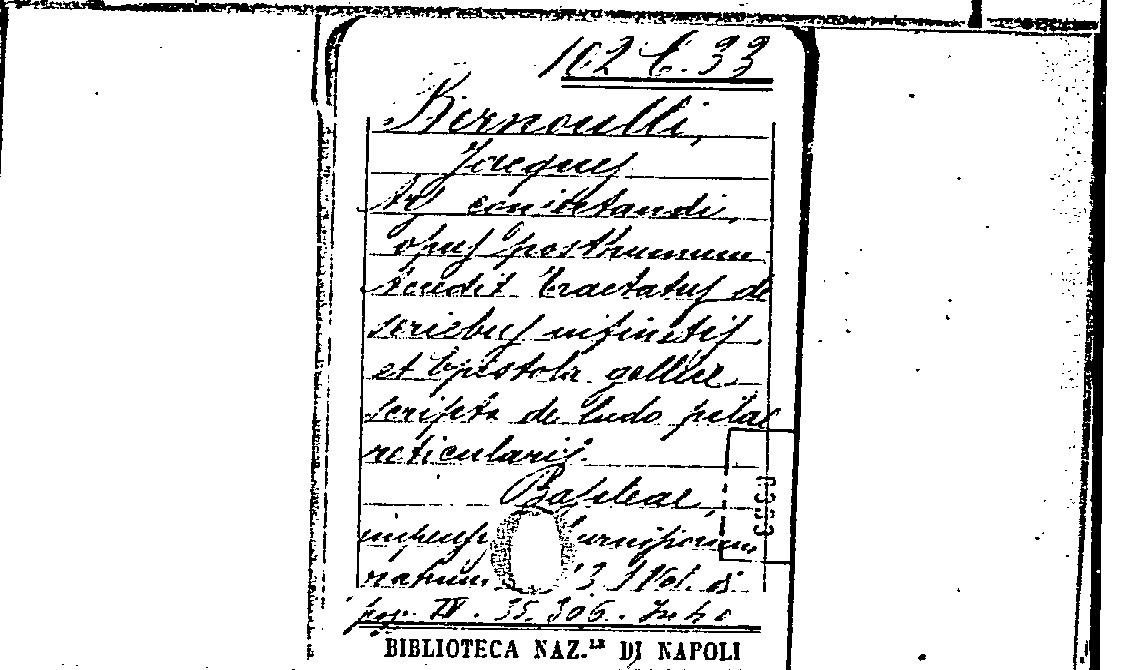 102 C. 33
Bernoulli,
Jacques
Ars coniectandi,
opus posthumum
Accedit Tractatus de
seriebus infinitis
et Epistola gallice
scripta de ludo pilae
reticularis.
Basileae,
impensis Thurnisiorum
3 Vol. di
pag. IV. 35. 306.
BIBLIOTECA NAZ.LE DI NAPOLI